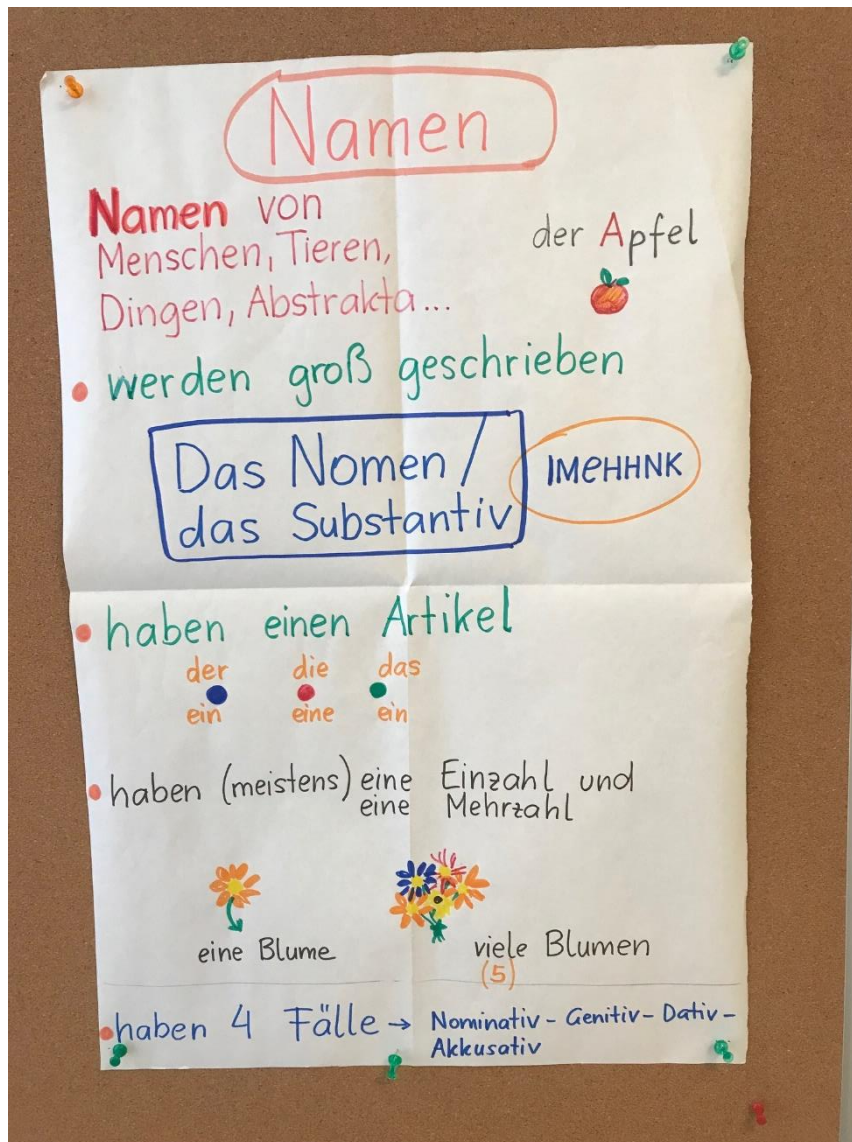 Namen
Namen von
Menschen, Tieren,
Dingen, Abstrakta...
der Apfel
• werden groß geschrieben
Das Nomen /
das Substantiv
ІМЕННИК
• haben einen Artikel
der die das
ein eine ein
• haben (meistens) eine Einzahl und
eine Mehrzahl
eine Blume
viele Blumen
(5)
• haben 4 Fälle → Nominativ - Genitiv - Dativ -
Akkusativ